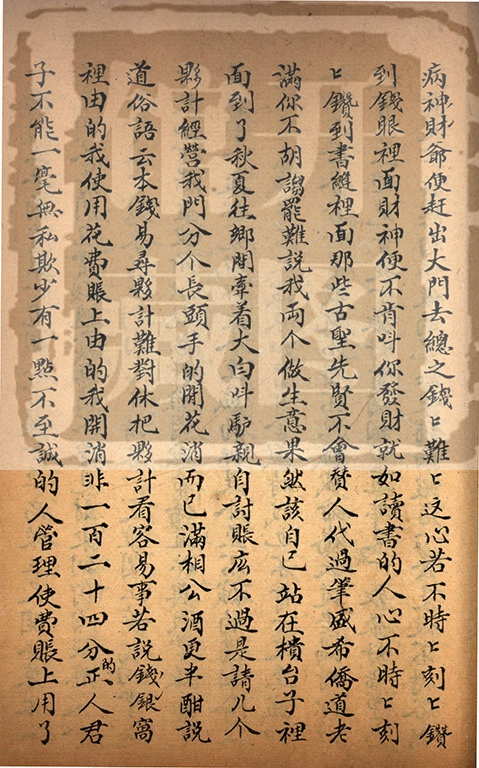 病神財爺便赶出大門去總之錢ヒ難ヒ这心若不時ヒ刻ヒ鑽
到錢眼裡面財神便不肯叫你發財就如讀書的人心不時ヒ刻
ヒ鑽到書縫裡面那些古聖先賢不會替人代過筆盛希僑道老
滿你不胡謅罷難說我両个做生意果然該自己站在樻台子裡
面到了秋夏往鄉間牽着大白叫馿親自討賬広不過是請几个
夥計經营我門分个長頭手的開花消而已滿相公酒更半酣說
道俗語云本錢易尋夥計難對休把夥計看容易事若說錢銀窩
裡由的我使用花費賬上由的我開消非一百二十四分的正人君
子不能一毫無私欺少有一點不至誠的人管理使費賬上用了